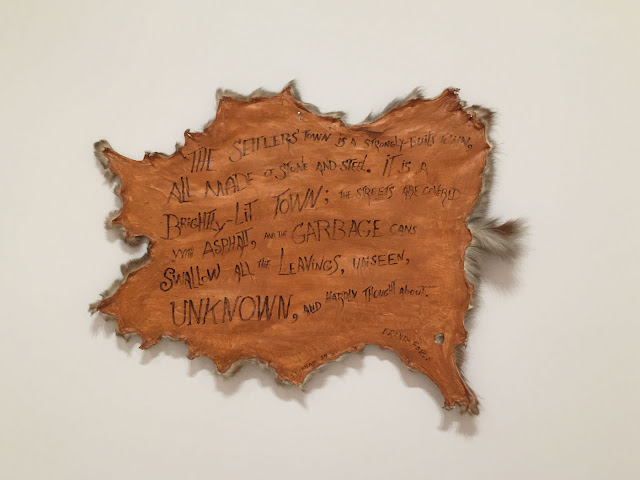 THE SETTLERS' TOWN IS A STRONGLY-BUILT TOWN,
ALL MADE OF STONE AND STEEL. IT IS A
BRIGHTLY-LIT TOWN; THE STREETS ARE COVERED
WITH ASPHALT, AND THE GARBAGE CANS
SWALLOW ALL THE LEAVINGS, UNSEEN,
UNKNOWN, AND HARDLY THOUGHT ABOUT.
FRANTZ FANON